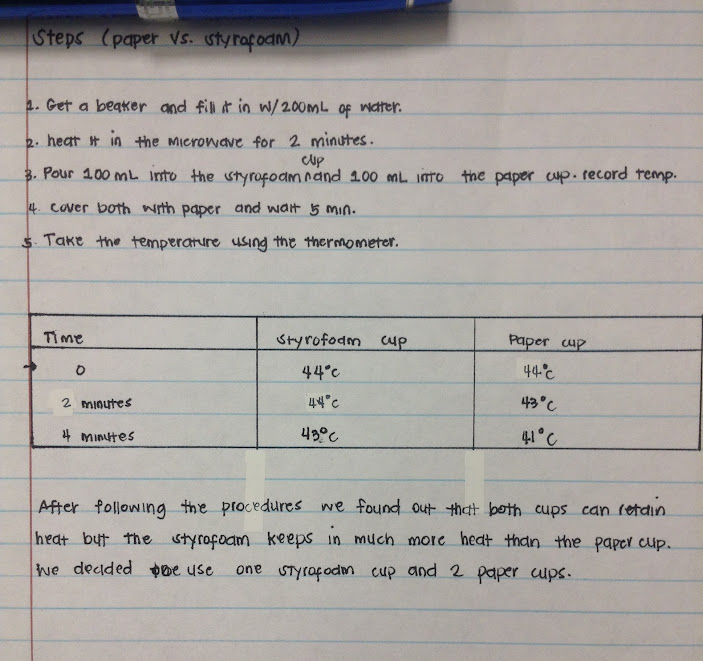 Steps (paper vs. styrofoam)
1. Get a beaker and fill it in w/200mL of water.
2. heat it in the microwave for 2 minutes.
3. Pour 100 mL into the styrofoam cup and 100 mL into the paper cup. record temp.
4. cover both with paper and wait 5 min.
5. Take the temperature using the thermometer.
Time styrofoam cup Paper cup
0 44°C 44°C
2 minutes 44°C 43°C
4 minutes 43°C 41°C
After following the procedures we found out that both cups can retain
heat but the styrofoam keeps in much more heat than the paper cup.
We decided use one styrofoam cup and 2 paper cups.